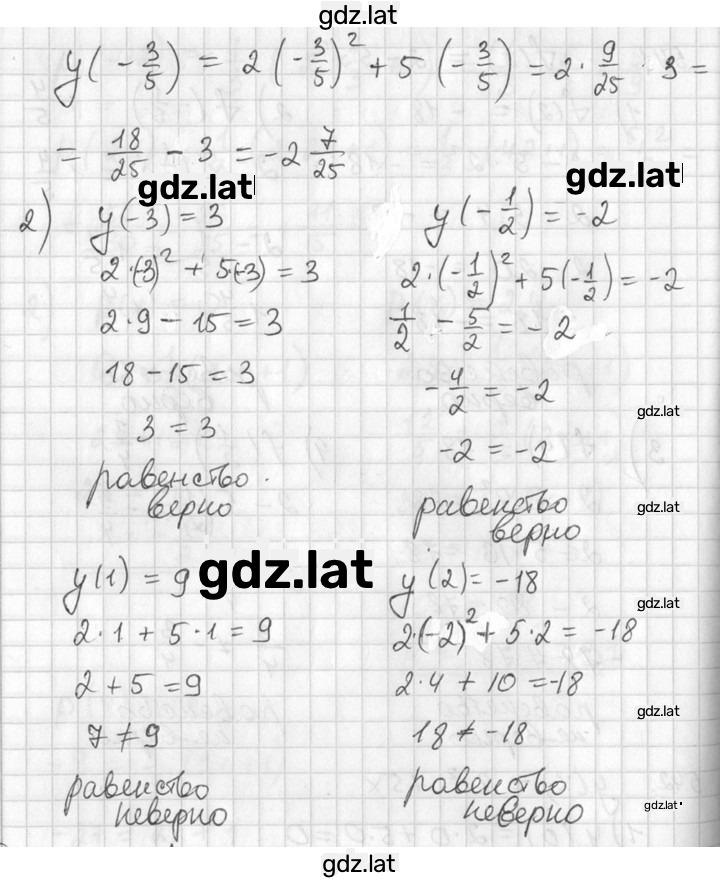 gdz.lat
y(-3/5) = 2(-3/5)² + 5(-3/5) = 2·9/25 · 3 =
= 18/25 - 3 = -2 7/25
gdz.lat
gdz.lat
2) y(-3) = 3
2·(-3)² + 5·(-3) = 3
2·9 - 15 = 3
18 - 15 = 3
3 = 3
равенство
верно
y(-1/2) = -2
2·(-1/2)² + 5(-1/2) = -2
1/2 - 5/2 = -2
-4/2 = -2
gdz.lat
-2 = -2
равенство
верно
gdz.lat
gdz.lat
y(1) = 9
2·1 + 5·1 = 9
2 + 5 = 9
7 ≠ 9
равенство
неверно
y(2) = -18
gdz.lat
2·(-2)² + 5·2 = -18
2·4 + 10 = -18
gdz.lat
18 ≠ -18
равенство
неверно
gdz.lat
gdz.lat